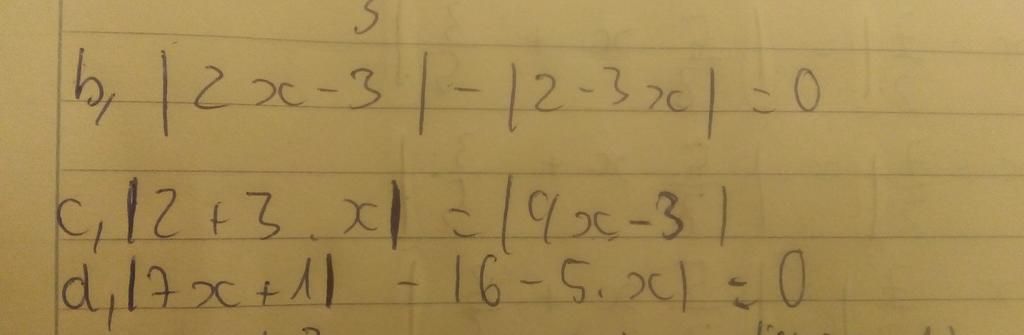 b, |2x-3| - |2-3x| = 0
c, |2+3.x| = |9x-3|
d, |7x+1| - |6-5.x| = 0